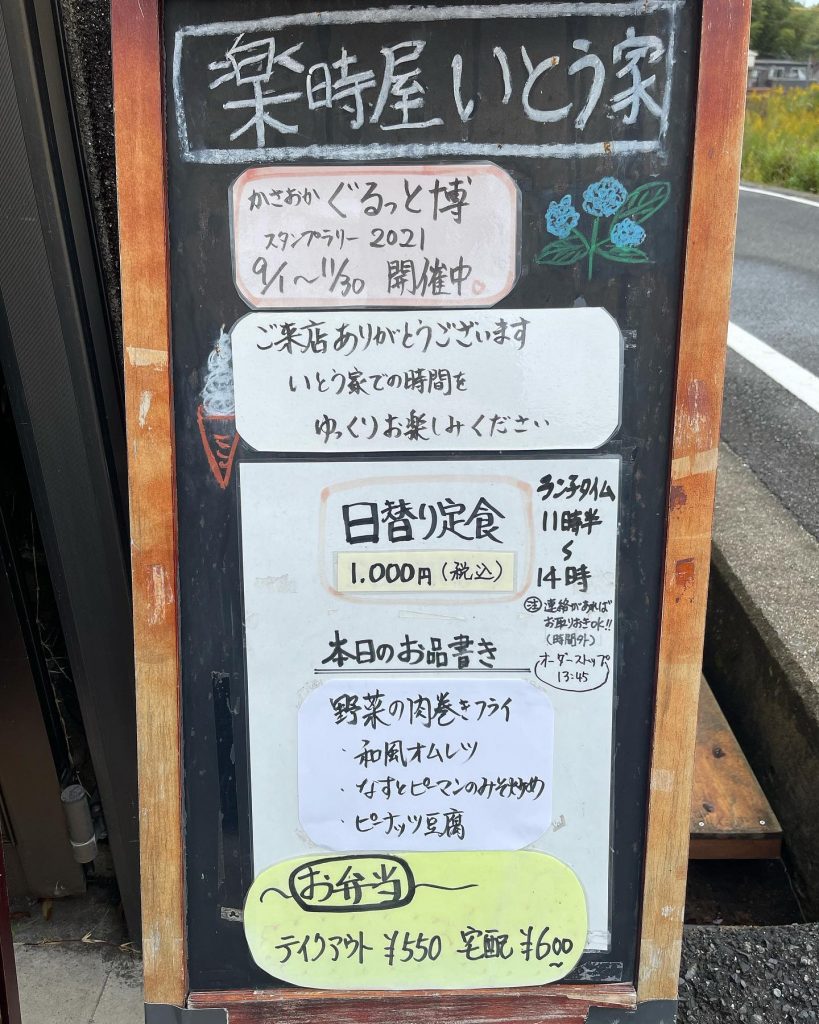 楽時屋 いとう家
かさおか ぐるっと博
スタンプラリー 2021
9/1～11/30 開催中。
ご来店ありがとうございます
いとう家での時間を
ゆっくりお楽しみください
日替り定食
1.000円(税込)
ランチタイム
11時半
～
14時
注 連絡があれば
お取りおきOK!!
(時間外)
オーダーストップ
13:45
本日のお品書き
野菜の肉巻きフライ
・和風オムレツ
・なすとピーマンのみそ炒め
・ピーナッツ豆腐
お弁当
テイクアウト ¥550 宅配 ¥600